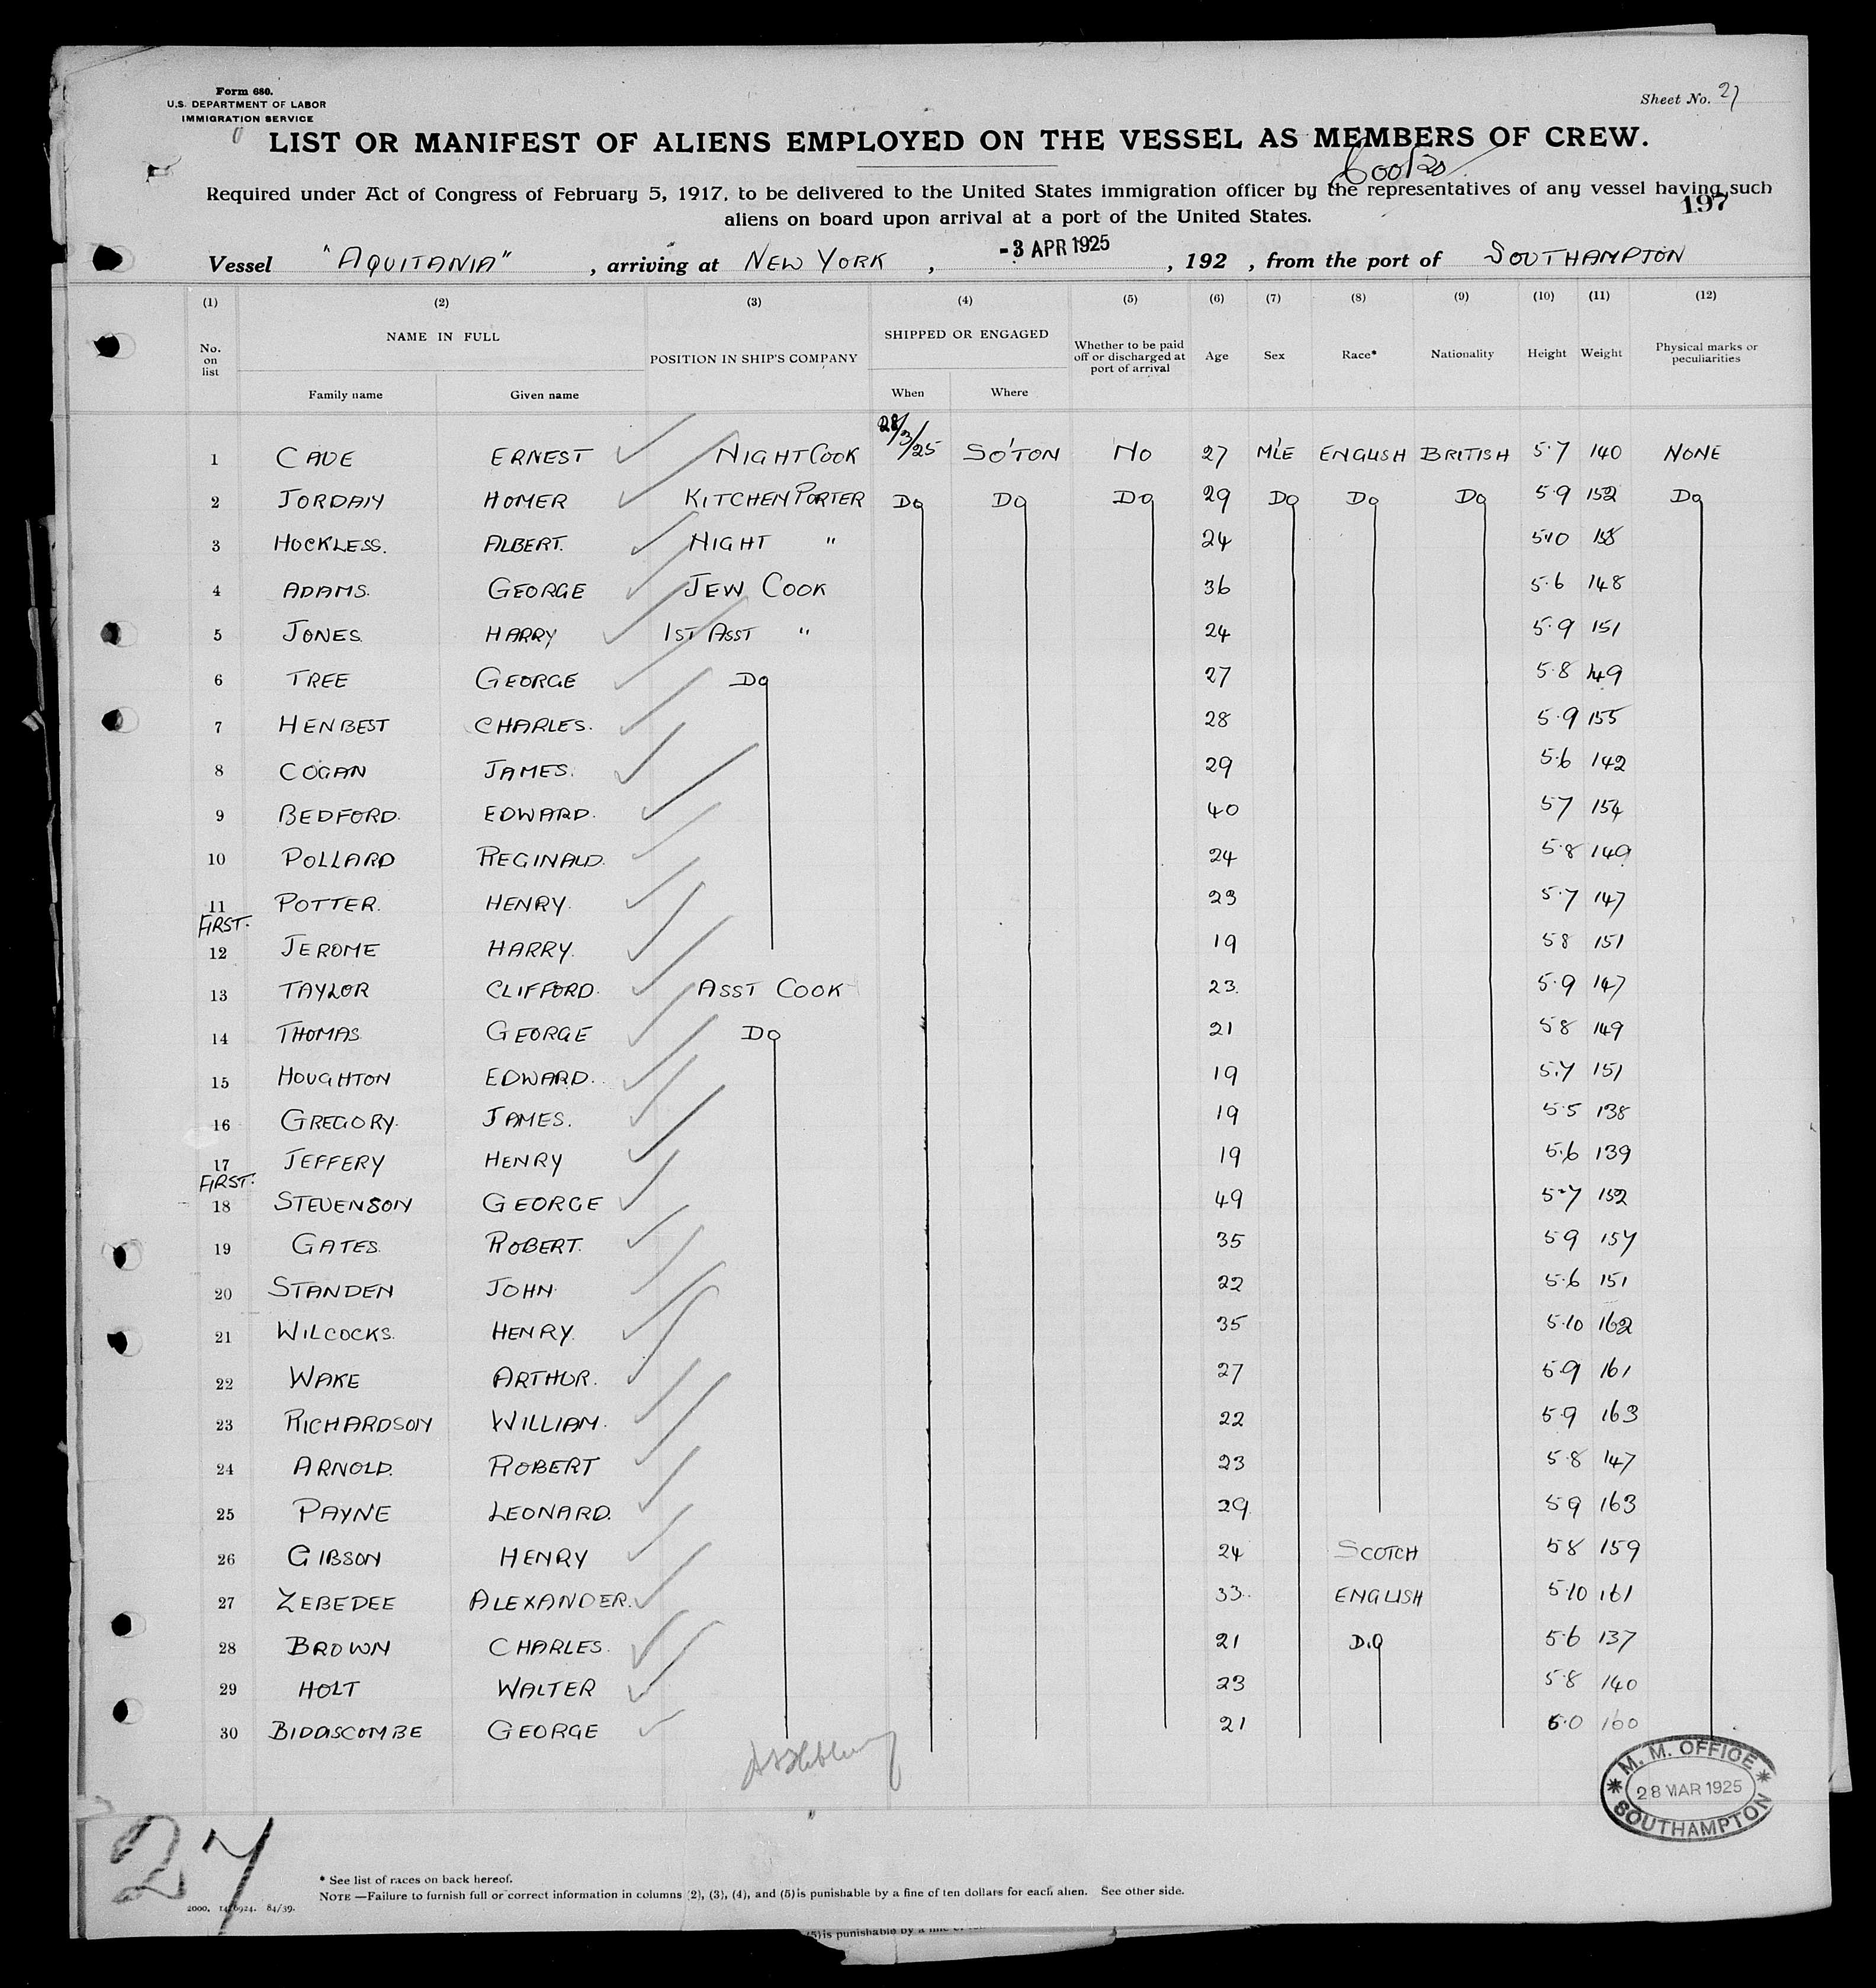 Form 680.
U.S. DEPARTMENT OF LABOR
IMMIGRATION SERVICE
Sheet No. 27
LIST OR MANIFEST OF ALIENS EMPLOYED ON THE VESSEL AS MEMBERS OF CREW.
Cooks
Required under Act of Congress of February 5, 1917, to be delivered to the United States immigration officer by the representatives of any vessel having such
197
aliens on board upon arrival at a port of the United States.
Vessel "AQUITANIA", arriving at NEW YORK, -3 APR 1925, 192 , from the port of SOUTHAMPTON
(1) (2) (3) (4) (5) (6) (7) (8) (9) (10) (11) (12)
No. on list NAME IN FULL POSITION IN SHIP'S COMPANY SHIPPED OR ENGAGED Whether to be paid off or discharged at port of arrival Age Sex Race* Nationality Height Weight Physical marks or peculiarities
Family name Given name When Where
1 CAVE ERNEST NIGHT COOK 28/3/25 SO'TON NO 27 MLE ENGLISH BRITISH 5·7 140 NONE
2 JORDAN HOMER KITCHEN PORTER DO DO DO 29 DO DO DO 5·9 152 DO
3 HOCKLESS. ALBERT. NIGHT " 24 5·10 158
4 ADAMS. GEORGE JEW COOK 36 5·6 148
5 JONES HARRY 1ST ASST " 24 5·9 151
6 TREE GEORGE DO 27 5·8 149
7 HENBEST CHARLES. 28 5·9 155
8 COGAN JAMES. 29 5·6 142
9 BEDFORD. EDWARD. 40 57 154
10 POLLARD REGINALD. 24 5·8 149
11 POTTER. HENRY. 23 5·7 147
FIRST.
12 JEROME HARRY. 19 58 151
13 TAYLOR CLIFFORD. ASST COOK 23. 5·9 147
14 THOMAS GEORGE DO 21 58 149
15 HOUGHTON EDWARD. 19 5.7 151
16 GREGORY. JAMES. 19 5·5 138
17 JEFFERY HENRY 19 5.6 139
FIRST.
18 STEVENSON GEORGE 49 5·7 152
19 GATES. ROBERT. 35 59 157
20 STANDEN JOHN 22 5·6 151
21 WILCOCKS. HENRY. 35 5·10 162
22 WAKE ARTHUR. 27 5·9 161
23 RICHARDSON WILLIAM. 22 59 163
24 ARNOLD. ROBERT 23 5·8 147
25 PAYNE LEONARD. 29 59 163
26 GIBSON HENRY 24 SCOTCH 58 159
27 ZEBEDEE ALEXANDER. 33. ENGLISH 5·10 161
28 BROWN CHARLES. 21 D.O 5·6 137
29 HOLT WALTER 23 5·8 140
30 BIDDISCOMBE GEORGE 21 6·0 160
M. M. OFFICE
28 MAR 1925
SOUTHAMPTON
27
* See list of races on back hereof.
NOTE —Failure to furnish full or correct information in columns (2), (3), (4), and (5) is punishable by a fine of ten dollars for each alien. See other side.
84/39.
(5) is punishable by a fine of